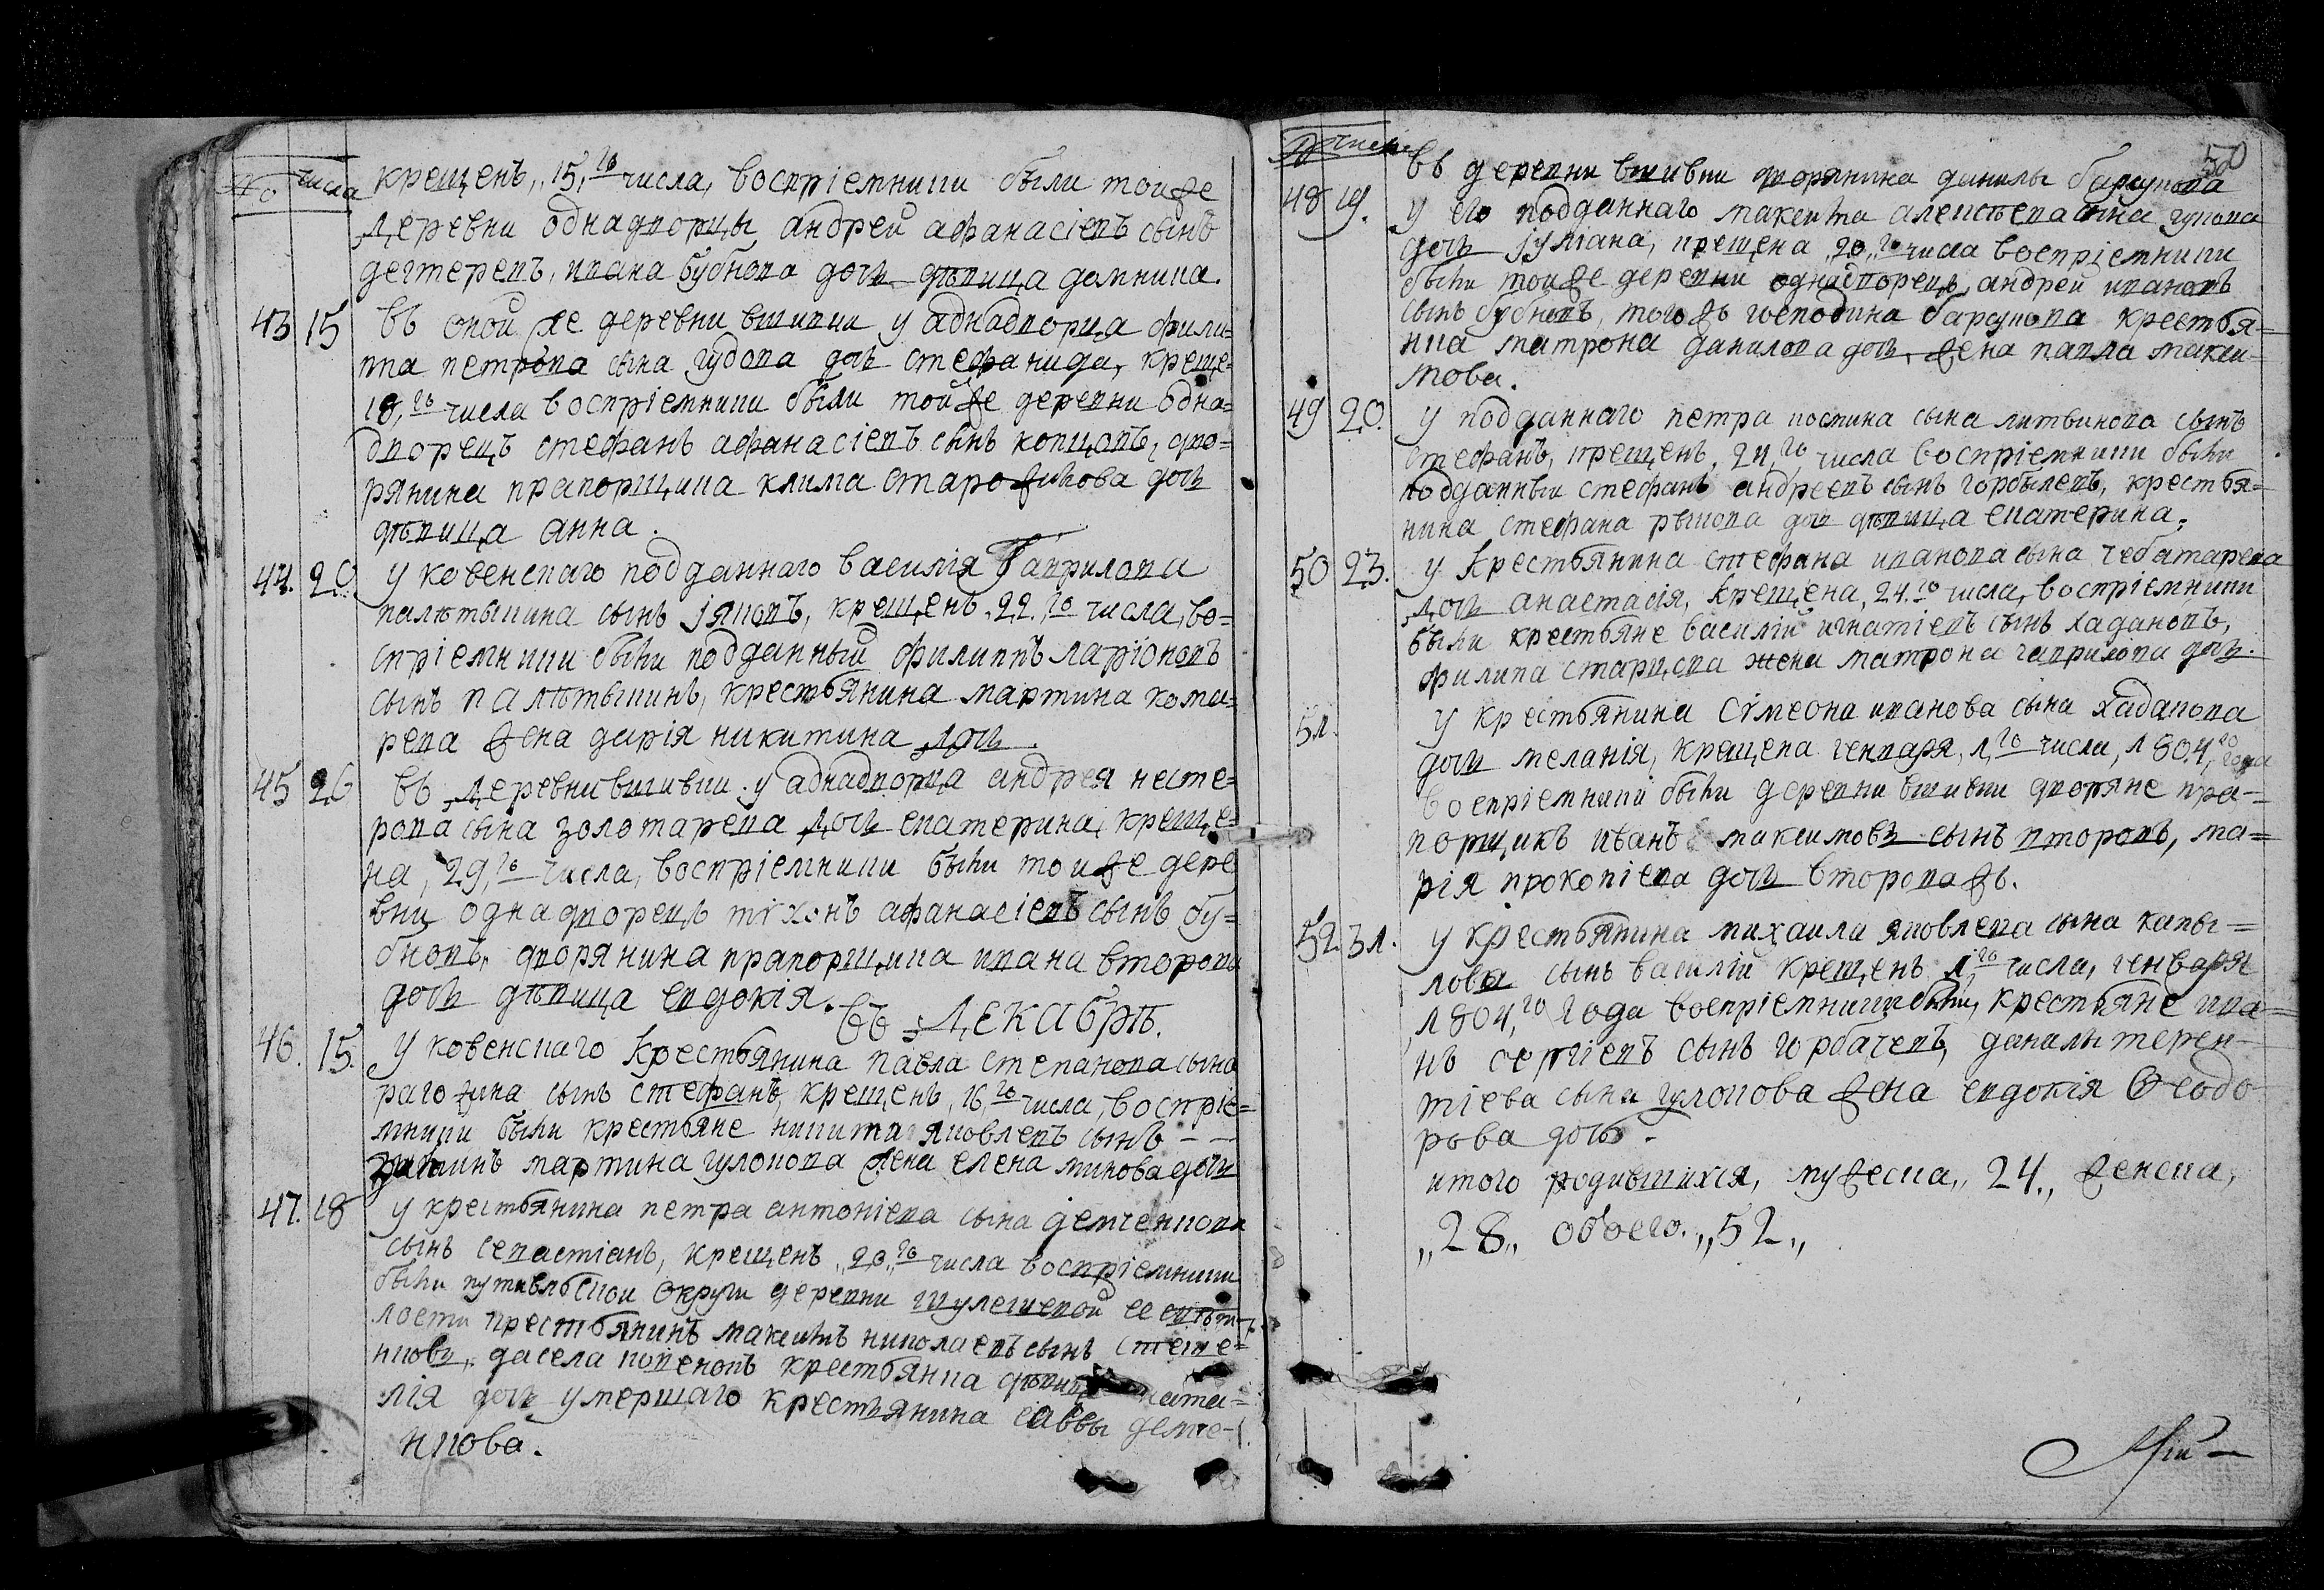 No числа
крещенъ, 15,го числа, воспріемники были тойже
деревни однадворцы андрей афанасіевъ сынъ
дегтеревъ, ивана бубнова дочь девица домника.
43 15 въ оной же деревни вшивки у аднадворца фили=
ппа петрова сына гудова дочь стефанида, креще=
18,го числа воспріемники были тойже деревни одна=
дворецъ стефанъ афанасіевъ сынъ копцовъ, дво=
рянина прапорщика клима старожикова дочь
дѣвица анна.
44. 20. у ковенскаго подданнаго василія гаврилова
палѣтыкина сынъ іяковъ, крещенъ, 22.го числа, во=
спріемники были подданный филиппъ ларіоновъ
сынъ палѣтыкинъ, крестьянина мартина кома=
рева жена дарія никитина дочь.
45 26 въ деревни вшивки у аднадворца андрея несте=
рова сына золотарева дочь екатерина, креще=
на, 29,го числа, воспріемники были тойже дере
вни однадворецъ тѵхонъ афанасіевъ сынъ бу=
бновъ, дворянина прапорщика ивана второва
дочь дѣвица евдокія.
въ декабрѣ.
46. 15. у ковенскаго крестьянина павла степанова сына
рагозина сынъ стефанъ, крещенъ, 16,го числа, воспріе=
мники были крестьяне никита яковлевъ сынъ - -
мартина гулокова жена елена минова дочь
47. 18 у крестьянина петра антоніева сына демченкова
сынъ севастіанъ, крещенъ „20„го числа воспріемники
были путивльской округи деревни шулешевой ее свѣт=
лости крестьянинъ максимъ николаевъ сынъ стеше=
нковъ, да села крестьянка девица ната=
лія дочь умершаго крестьянина саввы демче-
нкова.
No числа
50
въ деревни вшивки дворянина данилы барсукова
48 19. у его подданнаго максима алексѣева сына гукова
дочь іуліана, крещена „20„го числа воспріемники
были тойже деревни однадворецъ андрей ивановъ
сынъ бубновъ, тогожъ господина барсукова крестья=
нка матрона данилова дочь, жена павла макси-
мова.
49 20. у подданнаго петра костина сына литвинова сынъ
стефанъ, крещенъ, 21,го числа воспріемники были
подданный стефанъ андреевъ сынъ горбылевъ, крестья=
нина стефана рыкова дочь дѣвица екатерина.
50 23. у крестьянина стефана иванова сына чебатарева
дочь анастасія, крещена, 24.го числа, воспріемники
были крестьяне василій игнатіевъ сынъ хадановъ,
филипа старцева жена матрона гаврилова дочь.
51. у крестьянина сѵмеона иванова сына хаданова
дочь меланія, крещена генваря, 1,го числа, 1804,го года
воспріемники были деревни вшивки дворяне пра-
порщикъ иванъ максимовъ сынъ второвъ, ма=
рія прокопіева дочь второважъ.
52. 31. у крестьянина михаила яковлева сына капы=
лова сынъ василій крещенъ 1,го числа, генваря
1804,го года воспріемники были, крестьяне ива=
нъ сергіевъ сынъ горбачевъ, данилы терен-
тіева сына гулокова жена евдокія Ѳеодо
рова дочь.
итого родившихся, мужеска„ 24„ женска,
„28„ обоего. „52„